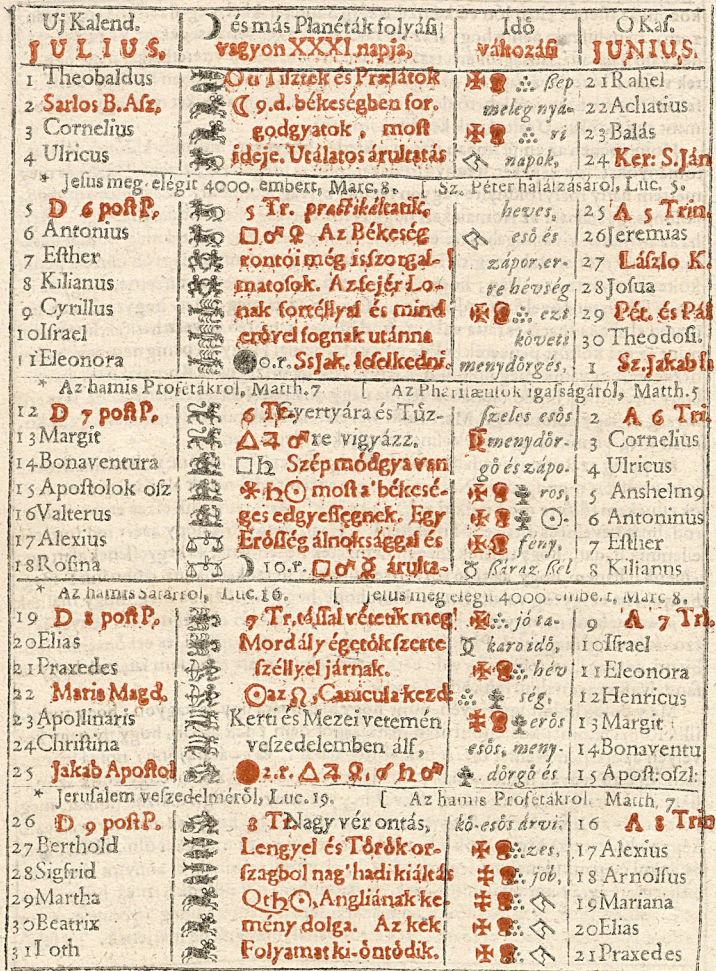 Uj Kalend. ☽ és más Planéták folyási Idő O Kal.
JULIUS. vagyon XXXI. napja, változási JUNIUS.
1 Theobaldus Tisztek és Prælátok ßep 21 Rahel
2 Sarlos B. Asz. ☾ 9. d. békeségben for. meleg nyá- 22 Achatius
3 Cornelius godgyatok, most ri 23 Balás
4 Ulricus ideje. Utálatos árultatás napok, 24 Ker: S. Ján
* Jesus meg-elégit 4000. embert, Marc. 8. [ Sz. Péter halászásárol, Luc. 5.
5 D 6 post P. 5 Tr. praktikáltatik. heves, 25 A 5 Trin.
6 Antonius □ ♂ ♀ Az Békeség esö és 26 Jeremias
7 Esther rontói még isszorgal- zápor, er- 27 Lászlo K.
8 Kilianus matosok. Az fejér Lo- re hévség 28 Josua
9 Cyrillus nak fortéllyal és mind ezt 29 Pét. és Pál
10 Israel erővel fognak utánna követi 30 Theodosi.
11 Eleonora ● 0. r. Ss Jak. leselkedni. menydörgés, 1 Sz. Jakab
* Az hamis Profetákrol, Matth. 7 [ Az Phariseusok igasságáról, Matth. 5
12 D 7 post P. 6 Tr. Gyertyára és Tűz- szeles esös 2 A 6 Tri.
13 Margit △ ♃ ♂ re vigyázz. menydör- 3 Cornelius
14 Bonaventura □ ♄ Szép módgya van gö és zápo- 4 Ulricus
15 Apostolok osz ⚹ ♄ ☉ most a' békesé- ros, 5 Anshelm9
16 Valterus ges edgyességnek. Egy ☉- 6 Antoninus
17 Alexius Erősség álnoksággal és fény, 7 Esther
18 Rosina ☽ 10. r. □ ♂ ☿ árulta- ßáraz ßel 8 Kilianns
* Az hamis Safárrol, Luc. 16. [ Jesus meg elégit 4000 embert, Marc 8.
19 D 8 post P. 7 Tr. tással vétetik meg! jó ta- 9 A 7 Tri.
20 Elias Mordály égetök szerte karo idö, 10 Israel
21 Praxedes széllyel járnak. hév 11 Eleonora
22 Maria Magd. ☉ az ♌, Canicula kezd: ség, 12 Henricus
23 Apollinaris Kerti és Mezei vetemén erös 13 Margit
24 Christina veszedelemben áll, esös, meny- 14 Bonaventu
25 Jakab Apostol 2. r. △ ♃ ♀, ☌ ♄ ♂ dörgö és 15 Apost: oszl:
* Jerusalem veszedelméröl, Luc. 19. [ Az hamis Profetakrol Matth. 7
26 D 9 post P. 8 Tr. Nagy vér ontás, kö-esös árvi: 16 A 8 Trin
27 Berthold Lengyel és Török or- zes, 17 Alexius
28 Sigfrid szagbol nag' hadi kiáltás job, 18 Arnolfus
29 Martha ♄ ☉, Angliának ke- 19 Mariana
30 Beatrix mény dolga. Az kék 20 Elias
31 Loth Folyamat ki-öntödik. 21 Praxedes